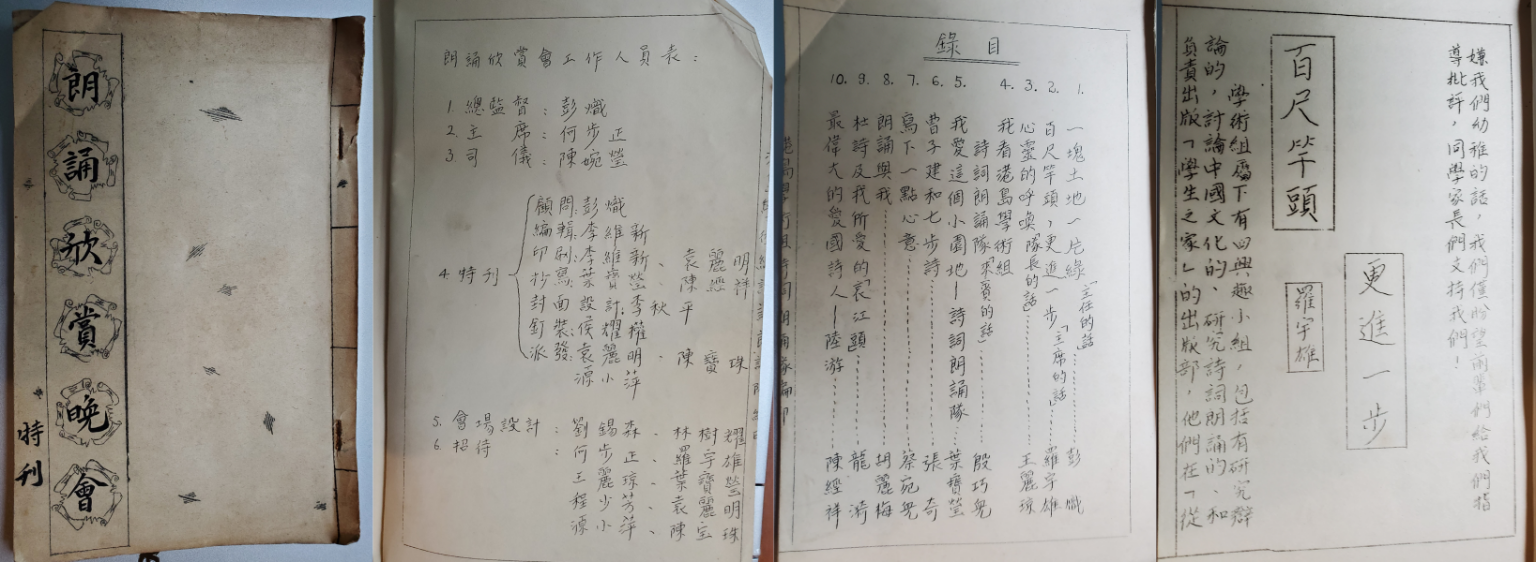 朗誦欣賞晚會
特刊
朗誦欣賞會工作人員表：
1. 總監督：彭熾
2. 主席：何步正
3. 司儀：陳婉瑩
4. 特刊
顧問：彭熾
編輯：李維新
印刷：李維新、袁麗明
抄寫：葉寶瑩、陳經祥
封面設計：李秋平
釘裝：侯耀權
派發：袁麗明、陳寶珠
源小萍
5. 會場設計：劉錫森、林樹耀
6. 招待：何步正、羅宇雄
王麗琼、葉寶瑩
程少芳、袁麗明
源小萍、陳宝珠
錄目
1. 一塊土地一片綠「主任的話」 彭熾
2. 百尺竿頭，更進一步「主席的話」 羅宇雄
3. 心靈的呼喚「隊長的話」 王麗琼
4. 我看港島學術組
詩詞朗誦隊「來賓的話」 殷巧兒
5. 我愛這個小園地—詩詞朗誦隊 葉寶瑩
6. 曹子建和七步詩 張奇
7. 寫下一點心意 蔡宛兒
8. 朗誦與我 胡麗梅
9. 杜詩及我所愛的「哀江頭」 龍漪
10. 最偉大的愛國詩人—陸游 陳經祥
嫌我們幼稚的話，我們僅盼望前輩們給我們指
導批評，同學家長們支持我們！
百尺竿頭
更進一步
羅宇雄
學術組屬下有四興趣小組，包括有研究辯
論的，討論中國文化的、研究詩詞朗誦的、和
負責出版「學生之家」的出版部，他們在「從